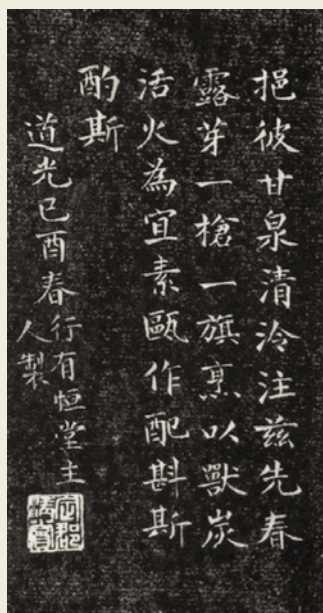 挹彼甘泉清泠注茲先春
露芽一槍一旗烹以獸炭
活火為宜素甌作配斟斯
酌斯
道光己酉春行有恒堂主
人製
定郡
清賞